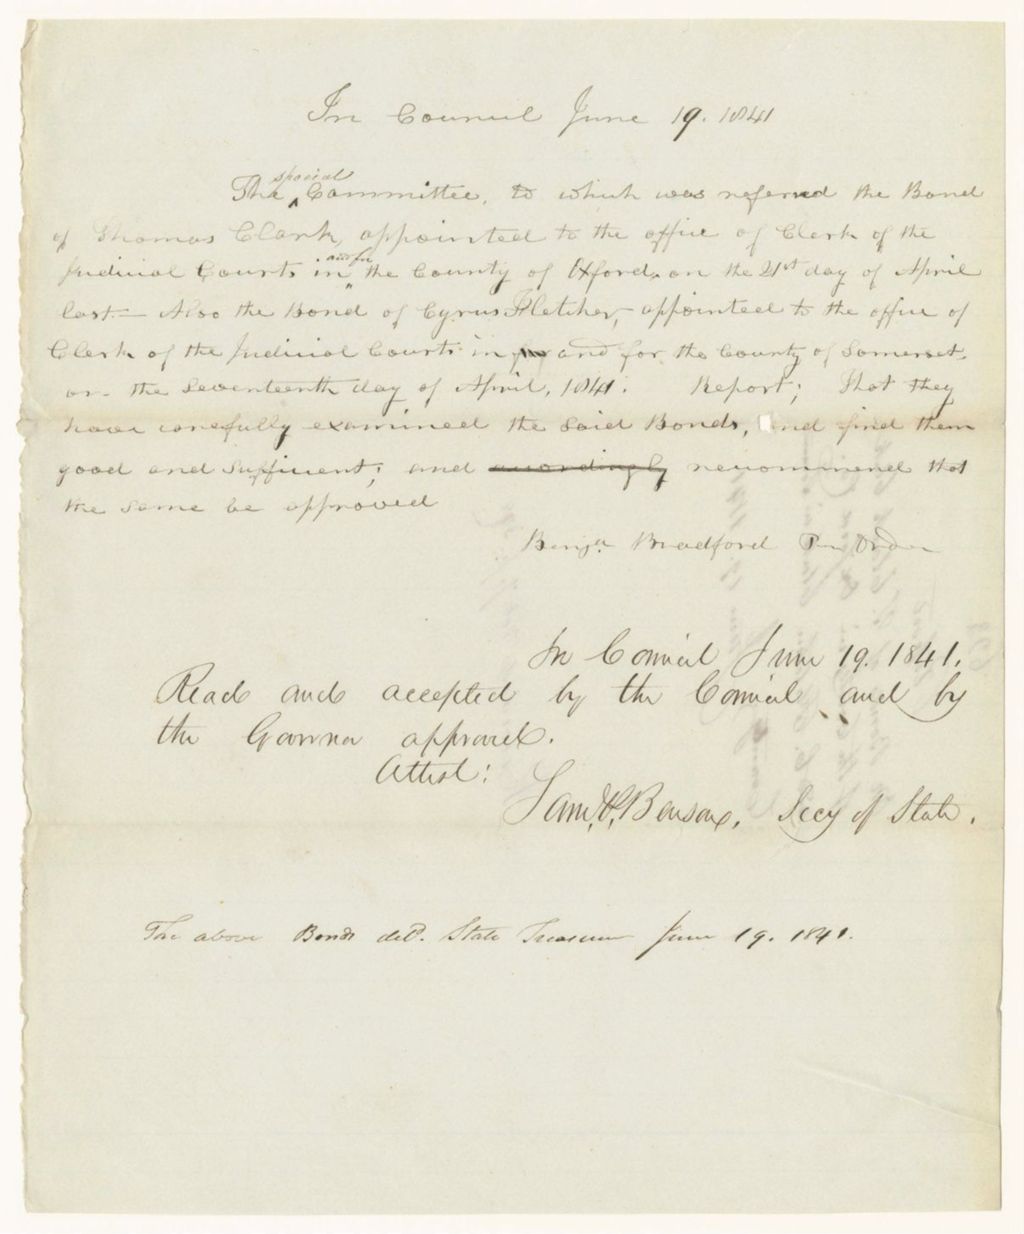 In Council June 19. 1841
special
The ^ Committee, to which was referred the Bond
of Thomas Clark, appointed to the office of Clerk of the
and for
Judicial Courts in ^ the County of Oxford, on the 21st day of April
last. — Also the Bond of Cyrus Fletcher, appointed to the office of
Clerk of the Judicial Courts in and for the County of Somerset,
on the Seventeenth day of April, 1841. Report; That they
have carefully examined the said Bonds, and find them
good and sufficient; and accordingly recommend that
the same be approved
Benjn. Bradford Per Order
In Council June 19. 1841.
Read and accepted by the Council and by
the Governor approved.
Attest:
Saml. P. Benson, Secy of State.
The above Bonds deld. State Treasurer June 19. 1841.